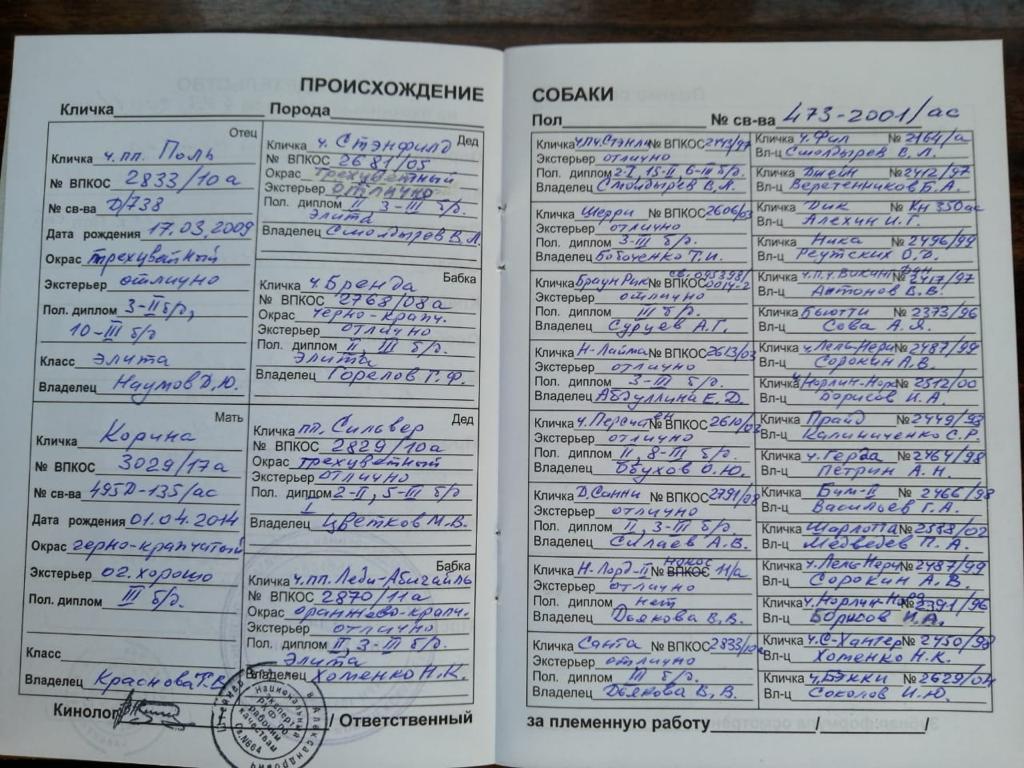 ПРОИСХОЖДЕНИЕ
Кличка Порода
Отец
Кличка ч. пп. Поль
№ ВПКОС 2833/10а
№ св-ва Д/738
Дата рождения 17.03.2009
Окрас трехцветный
Экстерьер отлично
Пол. диплом 3-II б/р,
10-III б/р
Класс элита
Владелец Наумов Д.Ю.
Мать
Кличка Корина
№ ВПКОС 3029/17а
№ св-ва 495Д-135/ас
Дата рождения 01.04.2014
Окрас черно-крапчатый
Экстерьер оч. хорошо
Пол. диплом III б/р.
Класс
Владелец Краснова Г.В.
Дед
Кличка ч. Стэнфилд
№ ВПКОС 2681/05
Окрас трехцветный
Экстерьер отлично
Пол. диплом II, 3-III б/р.
Элита
Владелец Смолдырев В.Л.
Бабка
Кличка ч. Бренда
№ ВПКОС 2768/08а
Окрас черно-крапч.
Экстерьер отлично
Пол. диплом II, III б/р.
Элита
Владелец Горелов Г.Ф.
Дед
Кличка пп. Сильвер
№ ВПКОС 2829/10а
Окрас трехцветный
Экстерьер отлично
Пол. диплом 2-II, 5-III б/р
I
Владелец Цветков М.В.
Бабка
Кличка ч. пп. Леди-Абигайль
№ ВПКОС 2870/11а
Окрас оранжево-крапч.
Экстерьер отлично
Пол. диплом II, 3-III б/р.
Элита
Владелец Хоменко Н.К.
Кинолог / Ответственный
Национальный
эксперт
РКФ по
рабочим
качествам
Св.№664
Александрович
СОБАКИ
Пол № св-ва 473-2001/ас
Кличка ч.пч. Стэнли № ВПКОС 2443/97
Экстерьер отлично
Пол. диплом 2-I, 15-II, 6-III б/р.
Владелец Смолдырев В.Л.
Кличка Шерри № ВПКОС 2606/03
Экстерьер отлично
Пол. диплом 3-III б/р.
Владелец Бобоченко Т.И.
св. 045398/
Кличка Браун Рик № ВПКОС 0014-2
Экстерьер отлично
Пол. диплом III б/р.
Владелец Сурцев А.Г.
Кличка Н-Лайма № ВПКОС 2613/03
Экстерьер отлично
Пол. диплом 3-III б/р.
Владелец Абдуллина Е.Д.
Кличка ч. Персиан № ВПКОС 2610/03
Экстерьер отлично
Пол. диплом II, 8-III б/р.
Владелец Обухов О.Ю.
Кличка Д. Санни № ВПКОС 2791/08
Экстерьер отлично
Пол. диплом II, 3-III б/р.
Владелец Силаев А.В.
Кличка Н. Лорд-II № ВПКОС 11/а
Экстерьер отлично
Пол. диплом нет
Владелец Дьякова В.В.
Кличка Санта № ВПКОС 2833/10а
Экстерьер отлично
Пол. диплом III б/р.
Владелец Дьякова В.В.
Кличка ч. Фил № 2164/а
Вл-ц Смолдырев В.Л.
Кличка Джейн № 2412/97
Вл-ц Веретенников Б.А.
Кличка Дик № Кн 350ас
Вл-ц Алехин И.Г.
Кличка Ника № 2496/99
Вл-ц Реутских О.Д.
Кличка ч.п.ч. Викинг № 2417/97
Вл-ц Антонов В.В.
Кличка Бьютти № 2373/96
Вл-ц Сова А.Я.
Кличка ч. Лель-Нери № 2487/99
Вл-ц Сорокин А.В.
Кличка ч. Норлин-Нора № 2512/00
Вл-ц Борисов И.А.
Кличка Прайд № 2449/98
Вл-ц Калиниченко С.Р.
Кличка ч. Герда № 2464/98
Вл-ц Петрин А.Н.
Кличка Бим-II № 2466/98
Вл-ц Васильев Г.А.
Кличка Шарлотта № 2558/02
Вл-ц Медведев П.А.
Кличка ч. Лель-Нери № 2487/99
Вл-ц Сорокин А.В.
Кличка ч. Норлин-Нора № 2391/96
Вл-ц Борисов И.А.
Кличка ч. С-Хантер № 2450/98
Вл-ц Хоменко Н.К.
Кличка ч. Бэкки № 2629/04
Вл-ц Соколов И.Ю.
за племенную работу / /